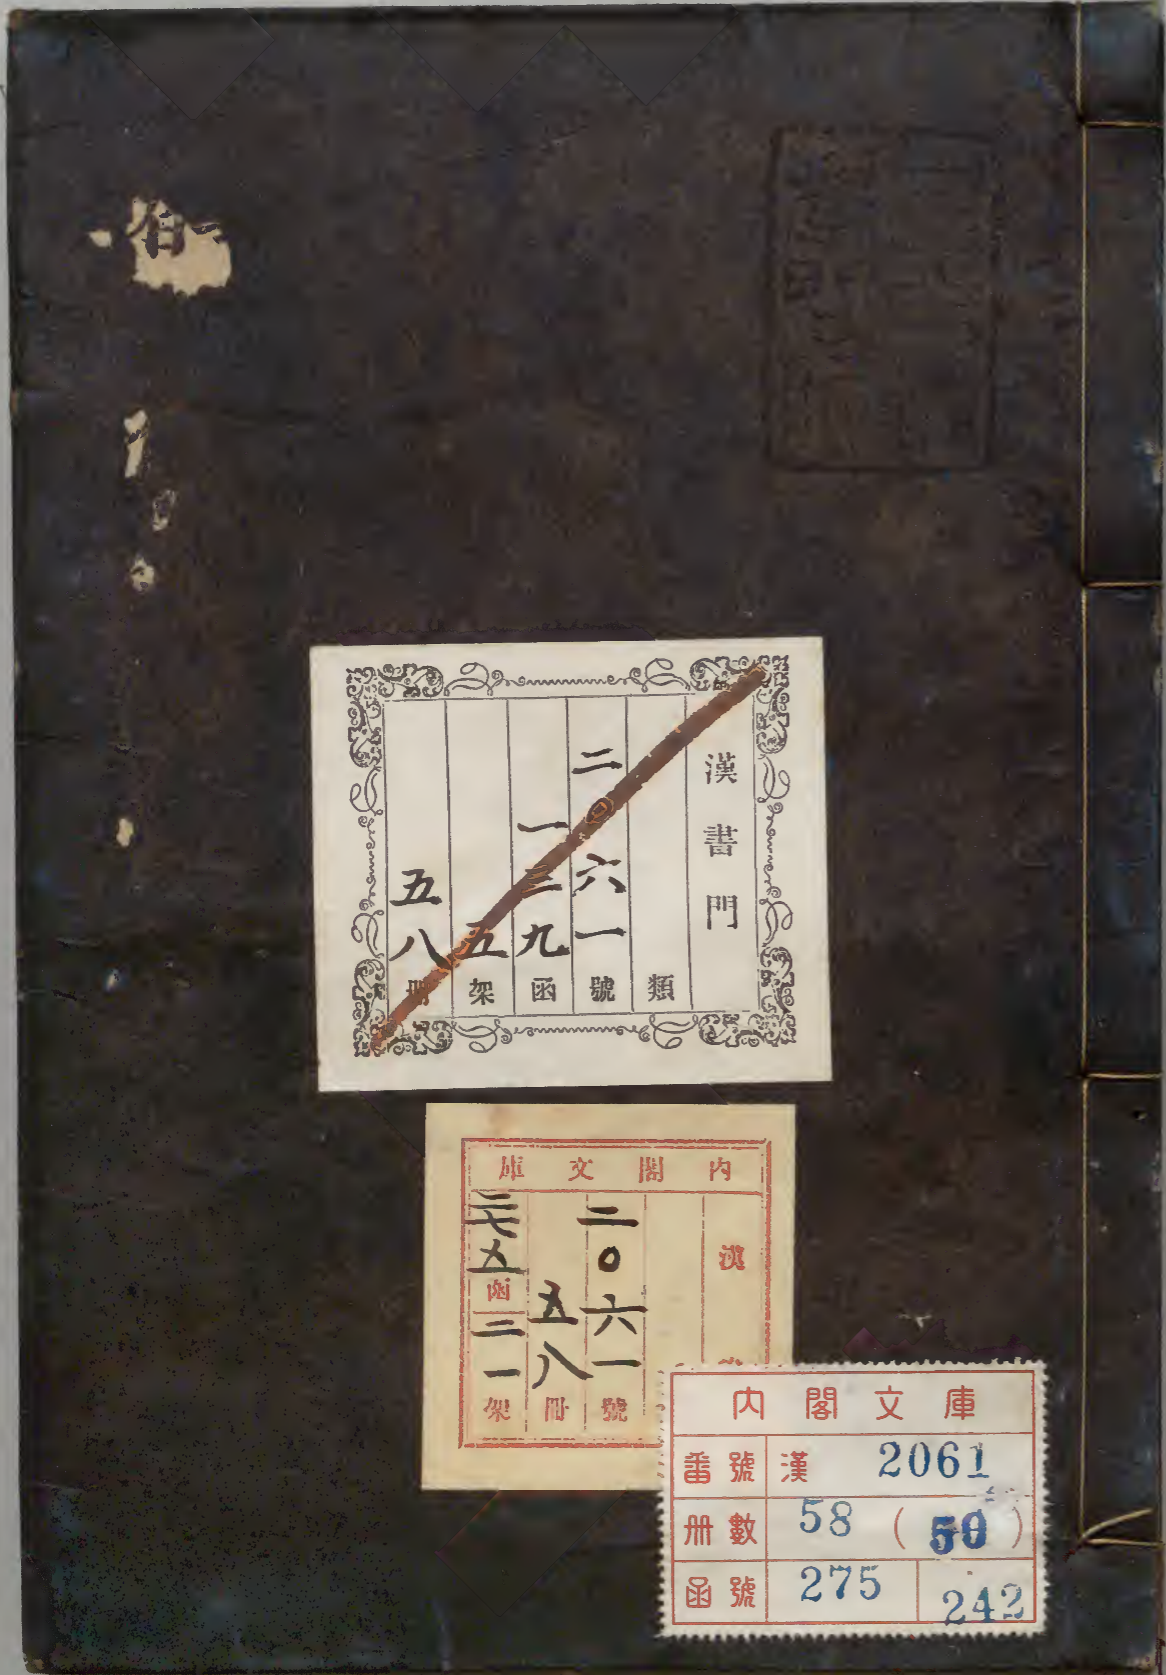 漢書門
類
二〇六一號
一三九函
五架
五八冊
内閣文庫
漢
二〇六一號
五八冊
二七五函二一架
内閣文庫
番號 漢 2061
册數 58 (50)
函號 275 242